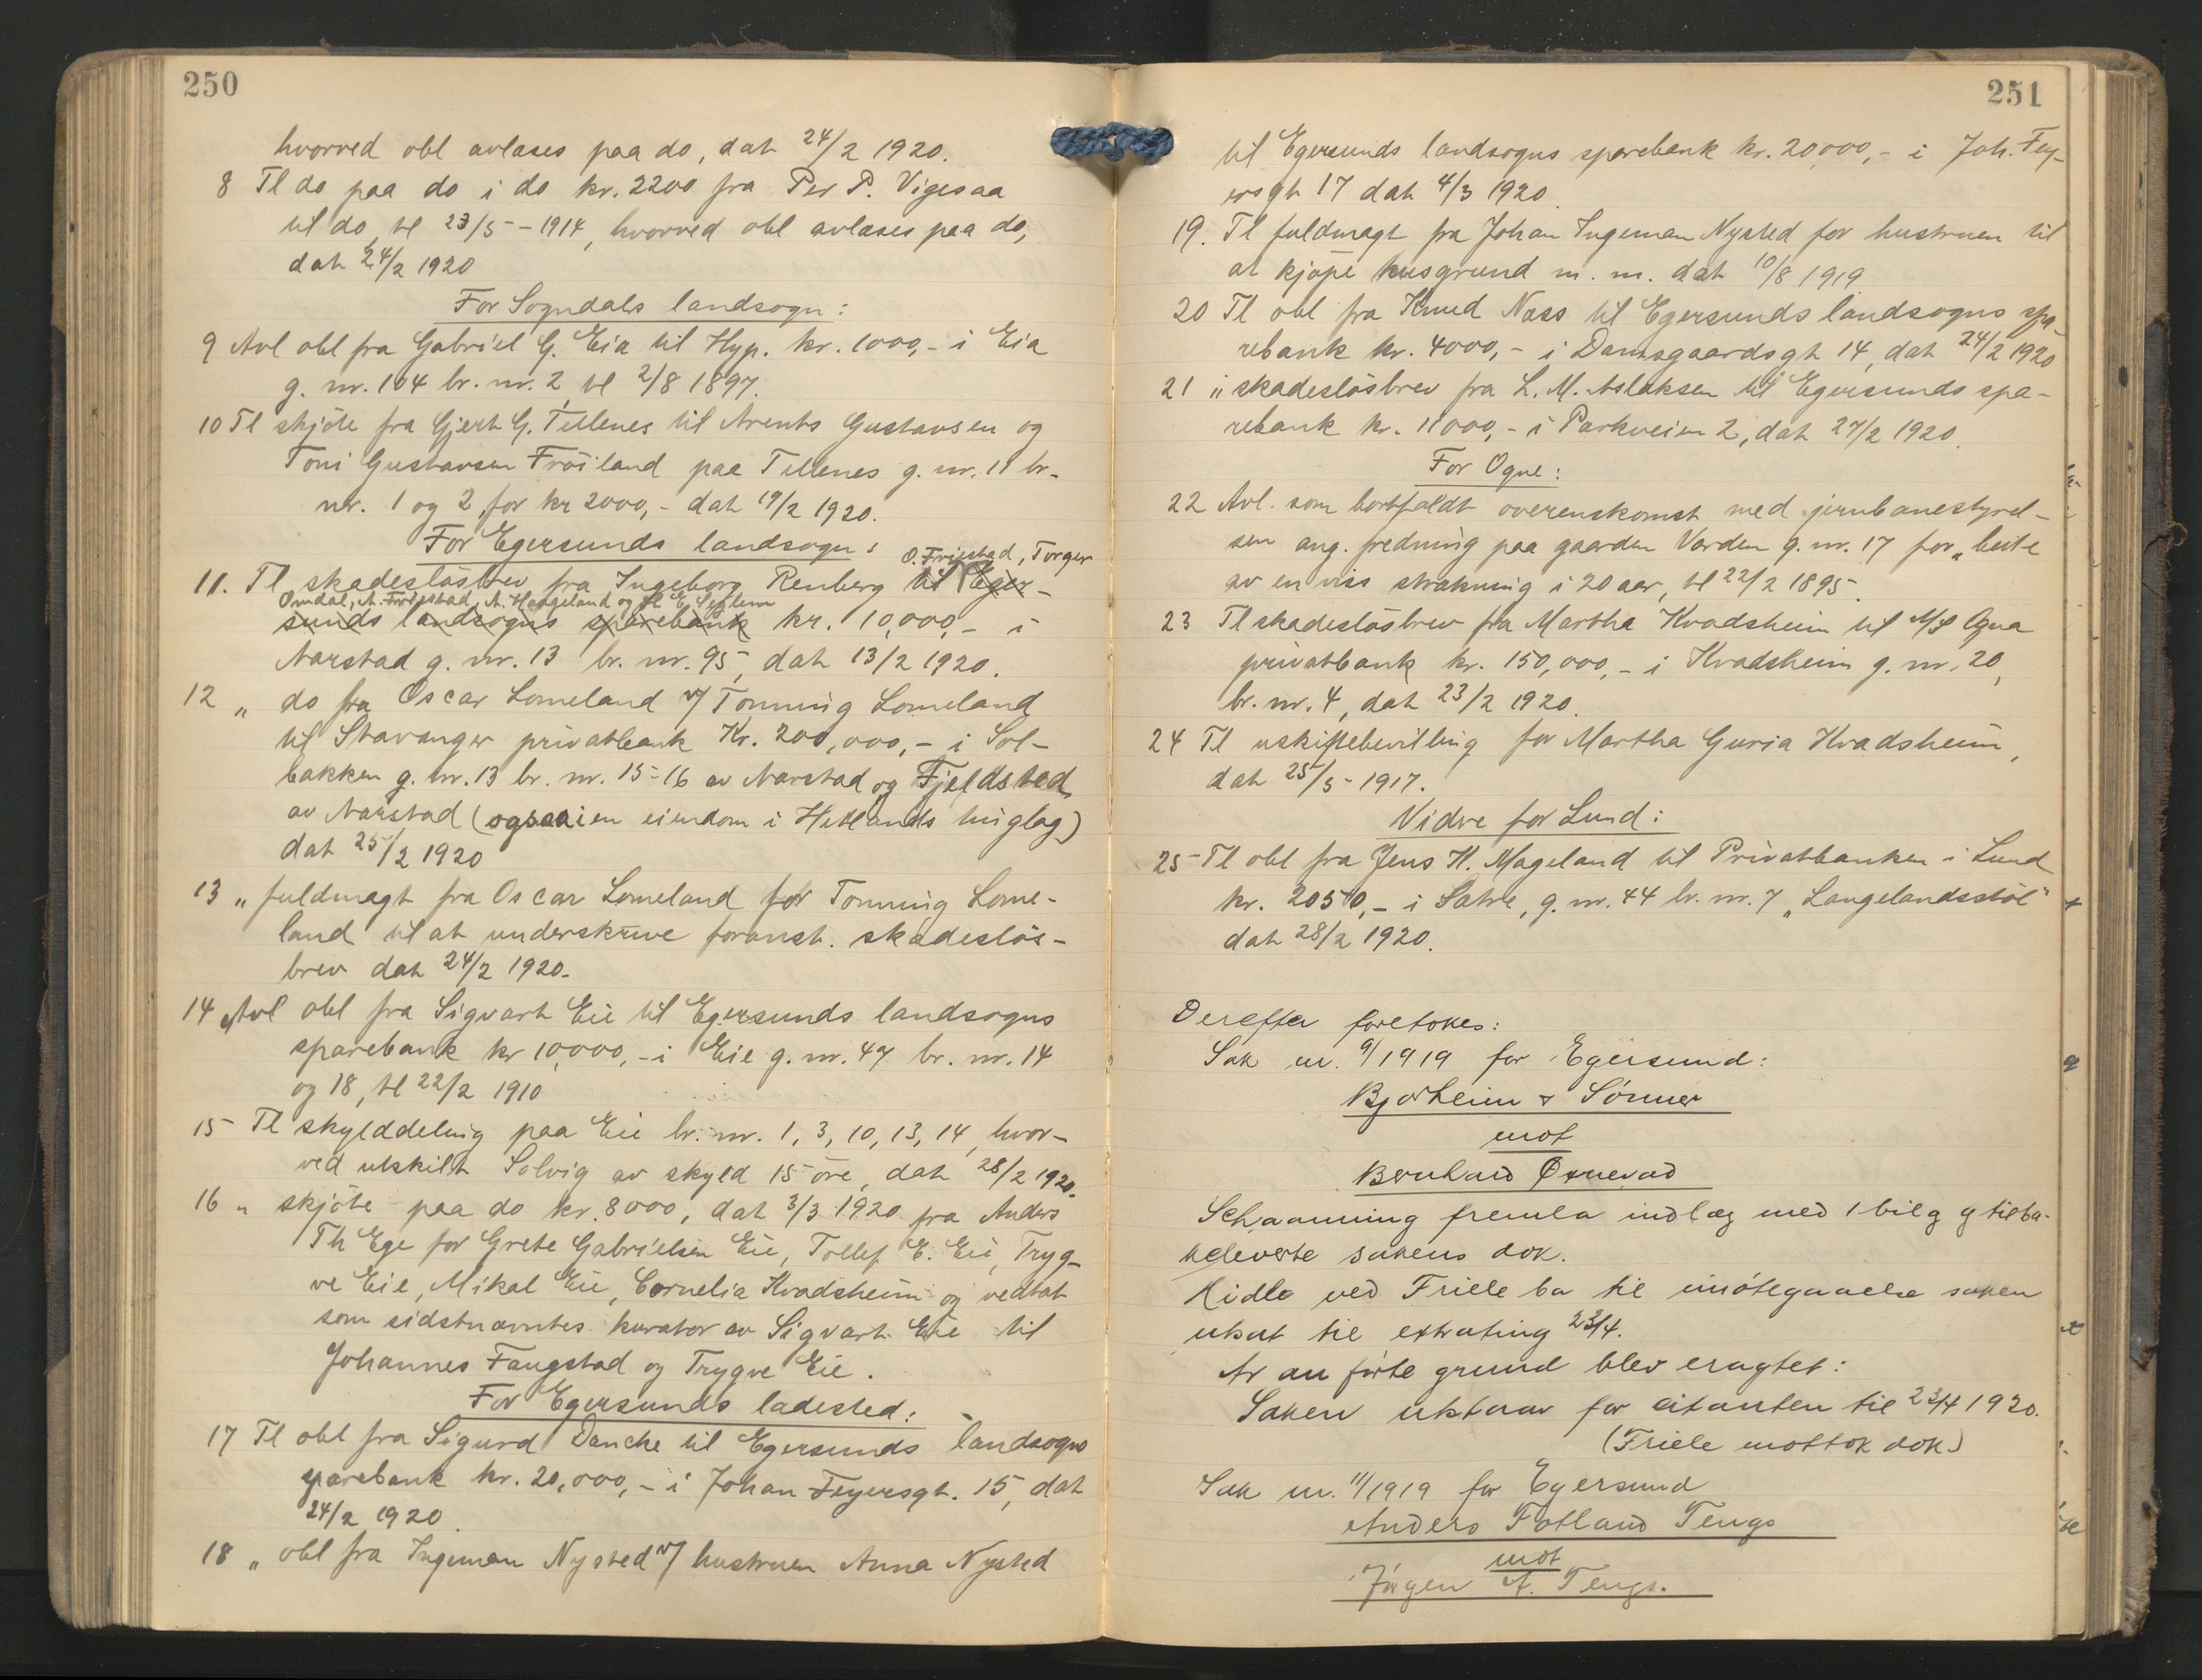 250
hvorved obl avlæses paa do, dat 24/2 1920.
8 Tl do paa do i do kr. 2200 fra Per P. Vigesaa
til do, tl 23/5 - 1914, hvorved obl avlæses paa do,
dat 24/2 1920
For Sogndals landsogn:
9 Avl obl fra Gabriel G. Eia til Hyp. kr. 1000,- i Eia
g. nr. 104 br. nr. 2, tl 2/8 1897.
10 Tl skjöte fra Gjert G. Tellenes til Arents Gustavsen og
Toni Gustavsen Fröiland paa Tellenes g. nr. 11 br.
nr. 1 og 2, for kr 2000,- dat 19/2 1920.
For Egersunds landsogn:
O. Friestad, Torger
11. Tl skadeslösbrev fra Ingeborg Renberg til Eger-
Omdal, A. Friestad, A. Haugeland og
sunds landsogns sparebank kr. 10,000,- i
Aarstad g. nr. 13 br. nr. 95, dat 13/2 1920.
12 „ do fra Oscar Lomeland v/ Tonning Lomeland
til Stavanger privatbank Kr. 200,000,- i Sol-
bakken g. nr. 13 br. nr. 15-16 av Aarstad og Fjeldsted
av Aarstad (ogsaa i en eiendom i Hetlands tinglag)
dat 25/2 1920
13 „ fuldmagt fra Oscar Lomeland for Tonning Lome-
land til at underskrive foranst. skadeslös-
brev dat 24/2 1920.
14 Avl obl fra Sigvart Eie til Egersunds landsogns
sparebank kr 10,000,- i Eie g. nr. 47 br. nr. 14
og 18, tl 22/2 1910
15 Tl skylddeling paa Eie br. nr. 1, 3, 10, 13, 14, hvor-
ved utskilt Solvig av skyld 15 öre, dat 28/2 1920.
16 „ skjöte paa do kr. 8000, dat 3/3 1920 fra Anders
Th Ege for Grete Gabrielsen Eie, Tollef E. Eie, Tryg-
ve Eie, Mikal Eie, Cornelia Kvadsheim og vedtat
som sidstnævntes kurator av Sigvart Eie til
Johannes Faugstad og Trygve Eie.
For Egersunds ladested:
17 Tl obl fra Sigurd Dancke til Egersunds landsogns
sparebank kr. 20,000,- i Johan Feyersgt. 15, dat
24/2 1920.
18 „ obl fra Ingeman Nysted v/ hustruen Anna Nysted
251
til Egersunds landsogns sparebank kr. 20,000,- i Joh. Fey-
ersgt 17 dat 4/3 1920.
19. Tl fuldmagt fra Johan Ingeman Nysted for hustruen til
at kjöpe husgrund m. m. dat 10/8 1919
20 Tl obl fra Knud Næss til Egersunds landsogns spa-
rebank kr. 4000,- i Damsgaardsgt 14, dat 24/2 1920
21 „ skadeslösbrev fra L. M. Aslaksen til Egersunds spa-
rebank kr. 11000,- i Parkveien 2, dat 27/2 1920.
For Ogne:
22 Avl. som bortfaldt overenskomst med jernbanestyrel-
sen ang. fredning paa gaarden Varden g. nr. 17 for „beite
av en viss strækning i 20 aar, tl 22/2 1895.
23 Tl skadeslösbrev fra Martha Kvadsheim til A/S Ogna
privatbank kr. 150,000,- i Kvadsheim g. nr. 20,
br. nr. 4, dat 23/2 1920.
24 Tl uskiftebevilling for Martha Guria Kvadsheim,
dat 25/5 - 1917.
Vidre for Lund:
25 Tl obl fra Jens H. Mageland til Privatbanken i Lund
kr. 2050,- i Sætre, g. nr. 44 br. nr. 7 „Langelandsstöl"
dat 28/2 1920.
Derefter foretokes:
Sak nr. 9/1919 for Egersund:
Bjorheim & Sönner
mot
Bernhard Øxnevad
Schanning fremla indlæg med 1 bilag og tilba-
keleverte sakens dok.
Kidle ved Friele ba til imötegaaelse saken
utsat til extrating 23/4.
Av anförte grund blev eragtet:
Saken utstaar for citanten til 23/4 1920.
(Friele mottok dok.)
Sak nr. 11/1919 for Egersund
Anders Fotland Tengs
mot
Jörgen A. Tengs.